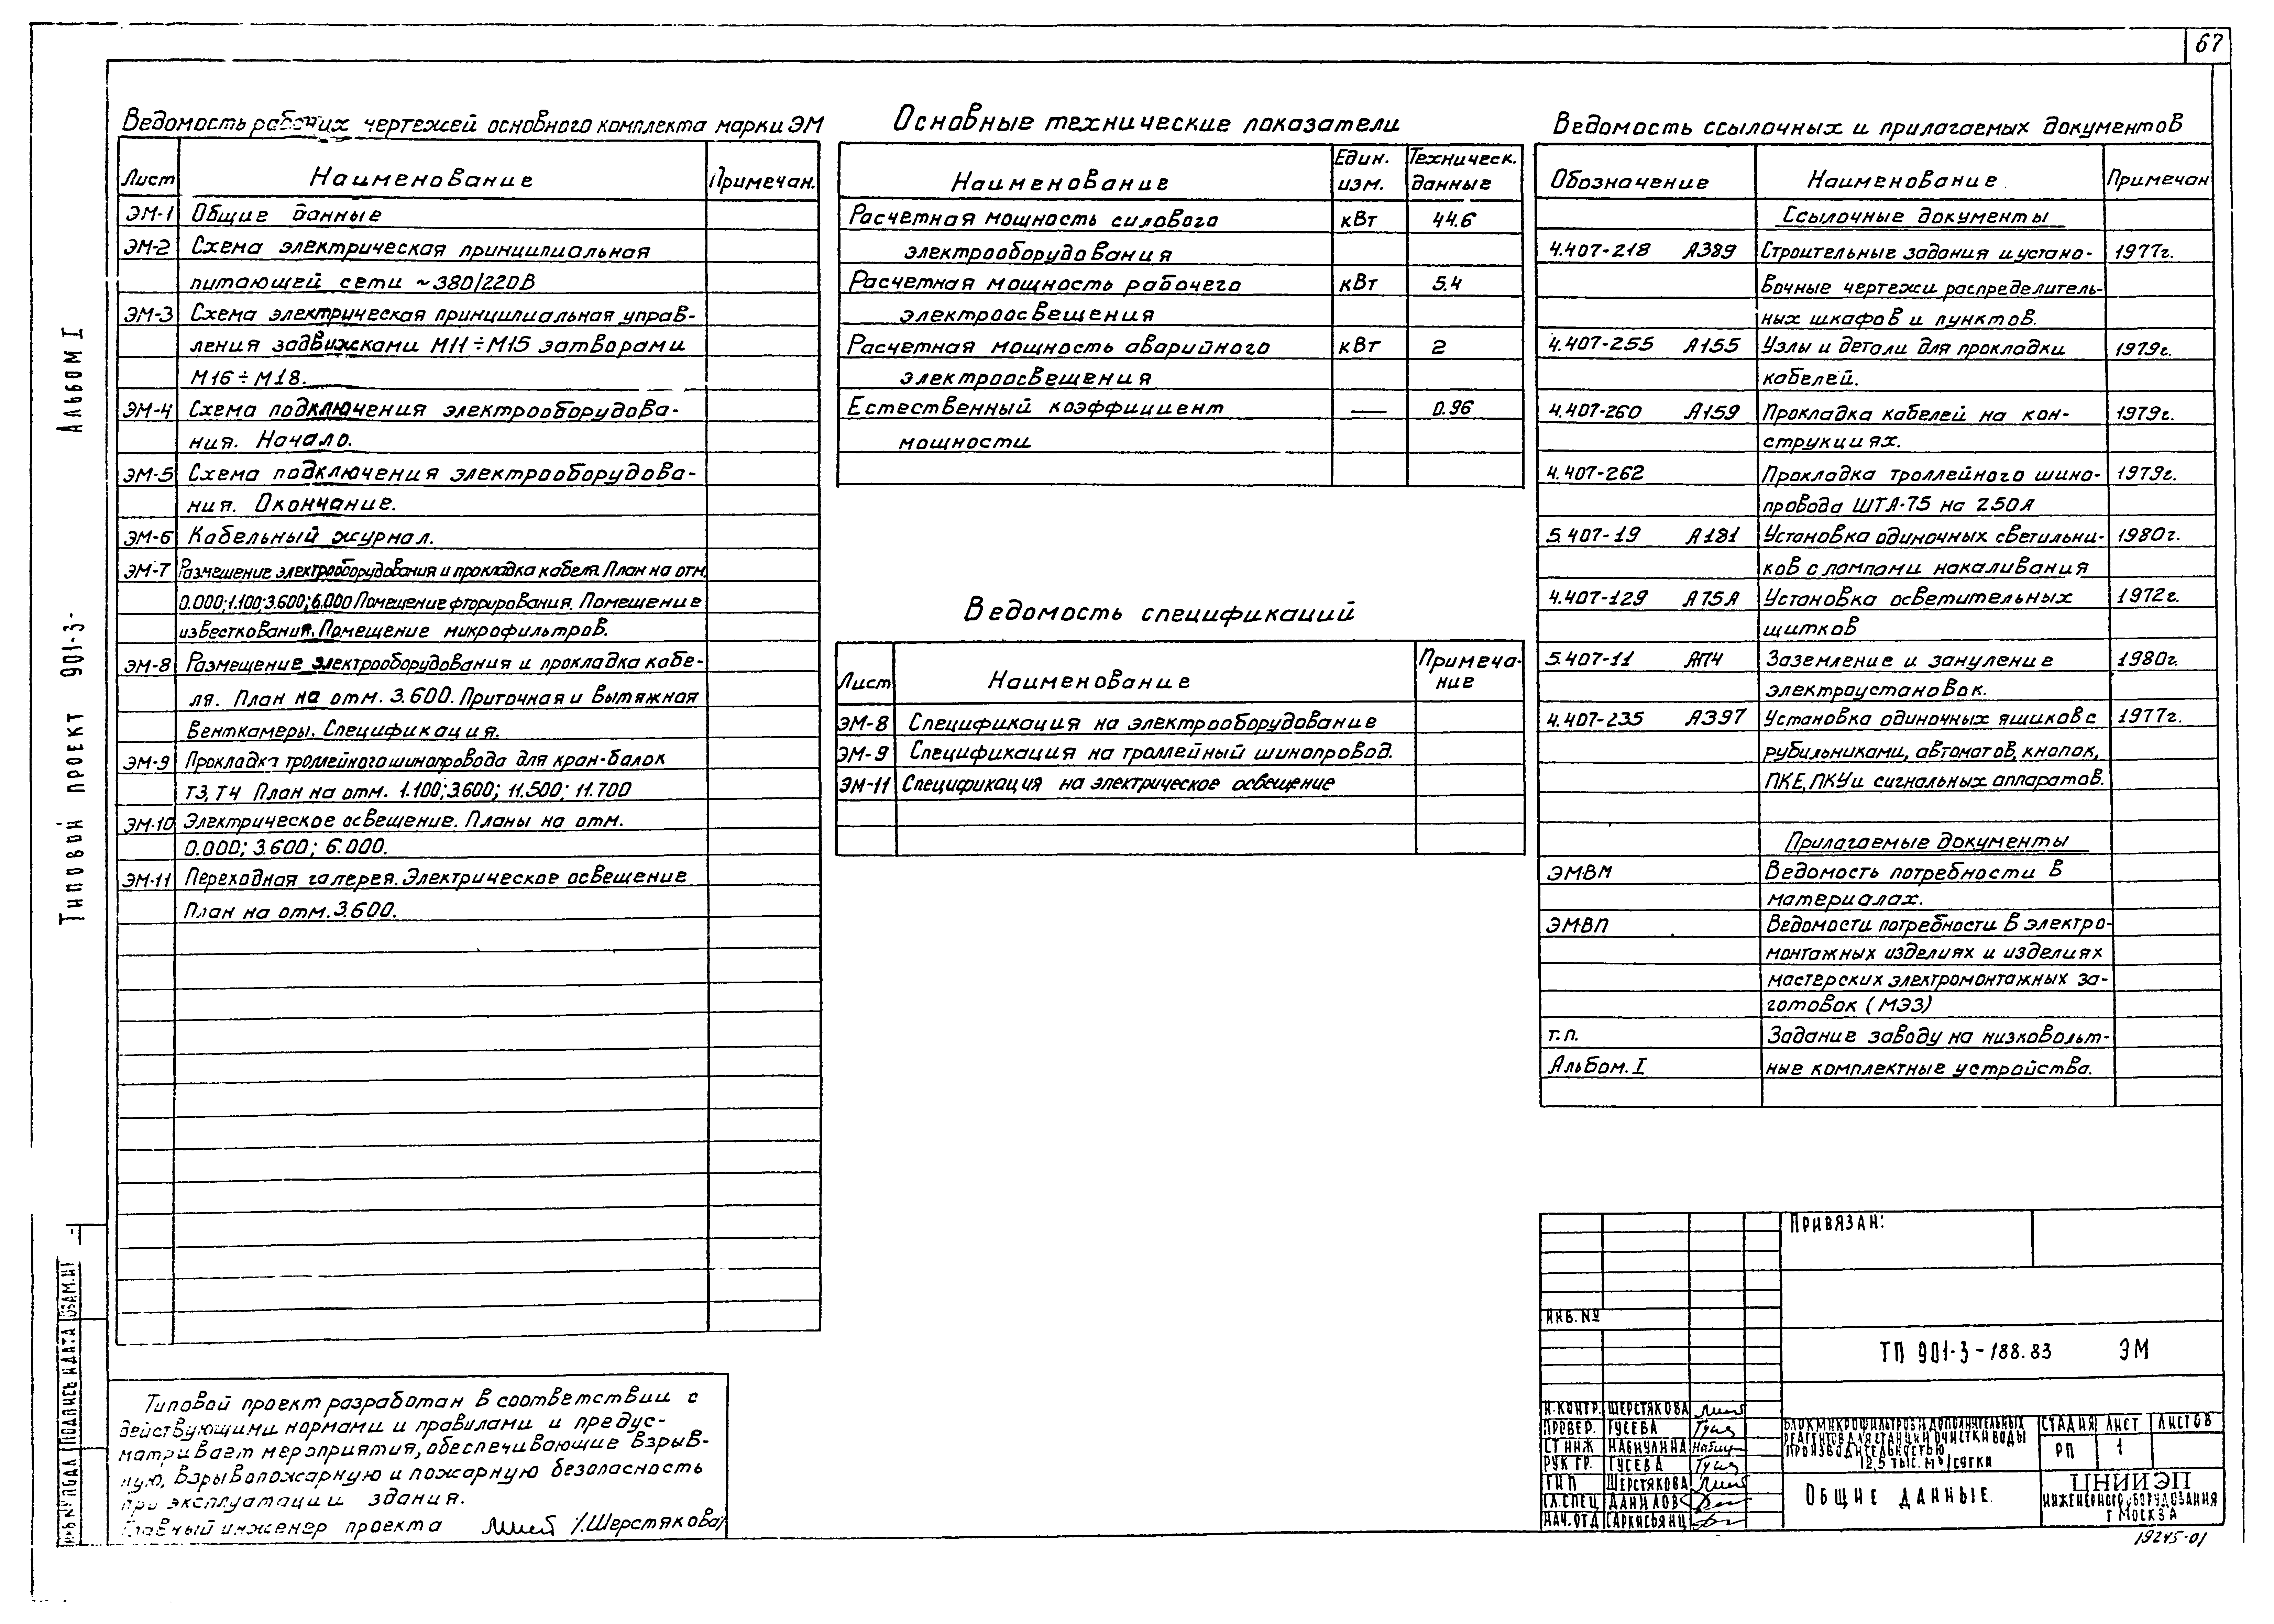 67
Альбом I
Типовой проект 901-3-
Ведомость рабочих чертежей основного комплекта марки ЭМ
Лист Наименование Примечан.
ЭМ-1 Общие данные
ЭМ-2 Схема электрическая принципиальная
питающей сети ~380/220В
ЭМ-3 Схема электрическая принципиальная управ-
ления задвижками М11÷М15 затворами
М16÷М18.
ЭМ-4 Схема подключения электрооборудова-
ния. Начало.
ЭМ-5 Схема подключения электрооборудова-
ния. Окончание.
ЭМ-6 Кабельный журнал.
ЭМ-7 Размещение электрооборудования и прокладка кабеля. План на отм.
0.000; 1.100; 3.600; 6.000 Помещение фторирования. Помещение
известкования. Помещение микрофильтров.
ЭМ-8 Размещение электрооборудования и прокладка кабе-
ля. План на отм. 3.600. Приточная и вытяжная
венткамеры. Спецификация.
ЭМ-9 Прокладка троллейного шинопровода для кран-балок
Т3, Т4 План на отм. 1.100; 3.600; 11.500; 11.700
ЭМ-10 Электрическое освещение. Планы на отм.
0.000; 3.600; 6.000.
ЭМ-11 Переходная галерея. Электрическое освещение
План на отм. 3.600.
Основные технические показатели
Наименование Един. изм. Техническ. данные
Расчетная мощность силового кВт 44.6
электрооборудования
Расчетная мощность рабочего кВт 5.4
электроосвещения
Расчетная мощность аварийного кВт 2
электроосвещения
Естественный коэффициент — 0.96
мощности
Ведомость спецификаций
Лист Наименование Примеча-
ние
ЭМ-8 Спецификация на электрооборудование
ЭМ-9 Спецификация на троллейный шинопровод.
ЭМ-11 Спецификация на электрическое освещение
Ведомость ссылочных и прилагаемых документов
Обозначение Наименование. Примечан
Ссылочные документы
4.407-218 А389 Строительные задания и устано- 1977г.
вочные чертежи распределитель-
ных шкафов и пунктов.
4.407-255 А155 Узлы и детали для прокладки 1979г.
кабелей.
4.407-260 А159 Прокладка кабелей на кон- 1979г.
струкциях.
4.407-262 Прокладка троллейного шино- 1979г.
провода ШТА-75 на 250А
5.407-19 А181 Установка одиночных светильни- 1980г.
ков с лампами накаливания
4.407-129 А75А Установка осветительных 1972г.
щитков
5.407-11 А174 Заземление и зануление 1980г.
электроустановок.
4.407-235 А397 Установка одиночных ящиков с 1977г.
рубильниками, автоматов, кнопок,
ПКЕ, ПКУ и сигнальных аппаратов.
Прилагаемые документы
ЭМВМ Ведомость потребности в
материалах.
ЭМВП Ведомости потребности в электро-
монтажных изделиях и изделиях
мастерских электромонтажных за-
готовок (МЭЗ)
т.п. Задание заводу на низковольт-
Альбом. I ные комплектные устройства.
Типовой проект разработан в соответствии с
действующими нормами и правилами и предус-
матривает мероприятия, обеспечивающие взрыв-
ную, взрывопожарную и пожарную безопасность
при эксплуатации здания.
Главный инженер проекта /Шерстякова/
Подпись и дата
Привязан:
Инв. №
ТП 901-3-188.83 ЭМ
Н.контр. Шерстякова
Провер. Гусева
Ст инж Набиулина
Рук гр. Гусева
ГИП Шерстякова
Гл.спец Данилов
Нач.отд Саркисьянц
Блок микрофильтров и дополнительных
реагентов для станции очистки воды
производительностью
12,5 тыс. м³/сутки
Стадия Лист Листов
РП 1
Общие данные.
ЦНИИЭП
инженерного оборудования
г Москва
19245-01